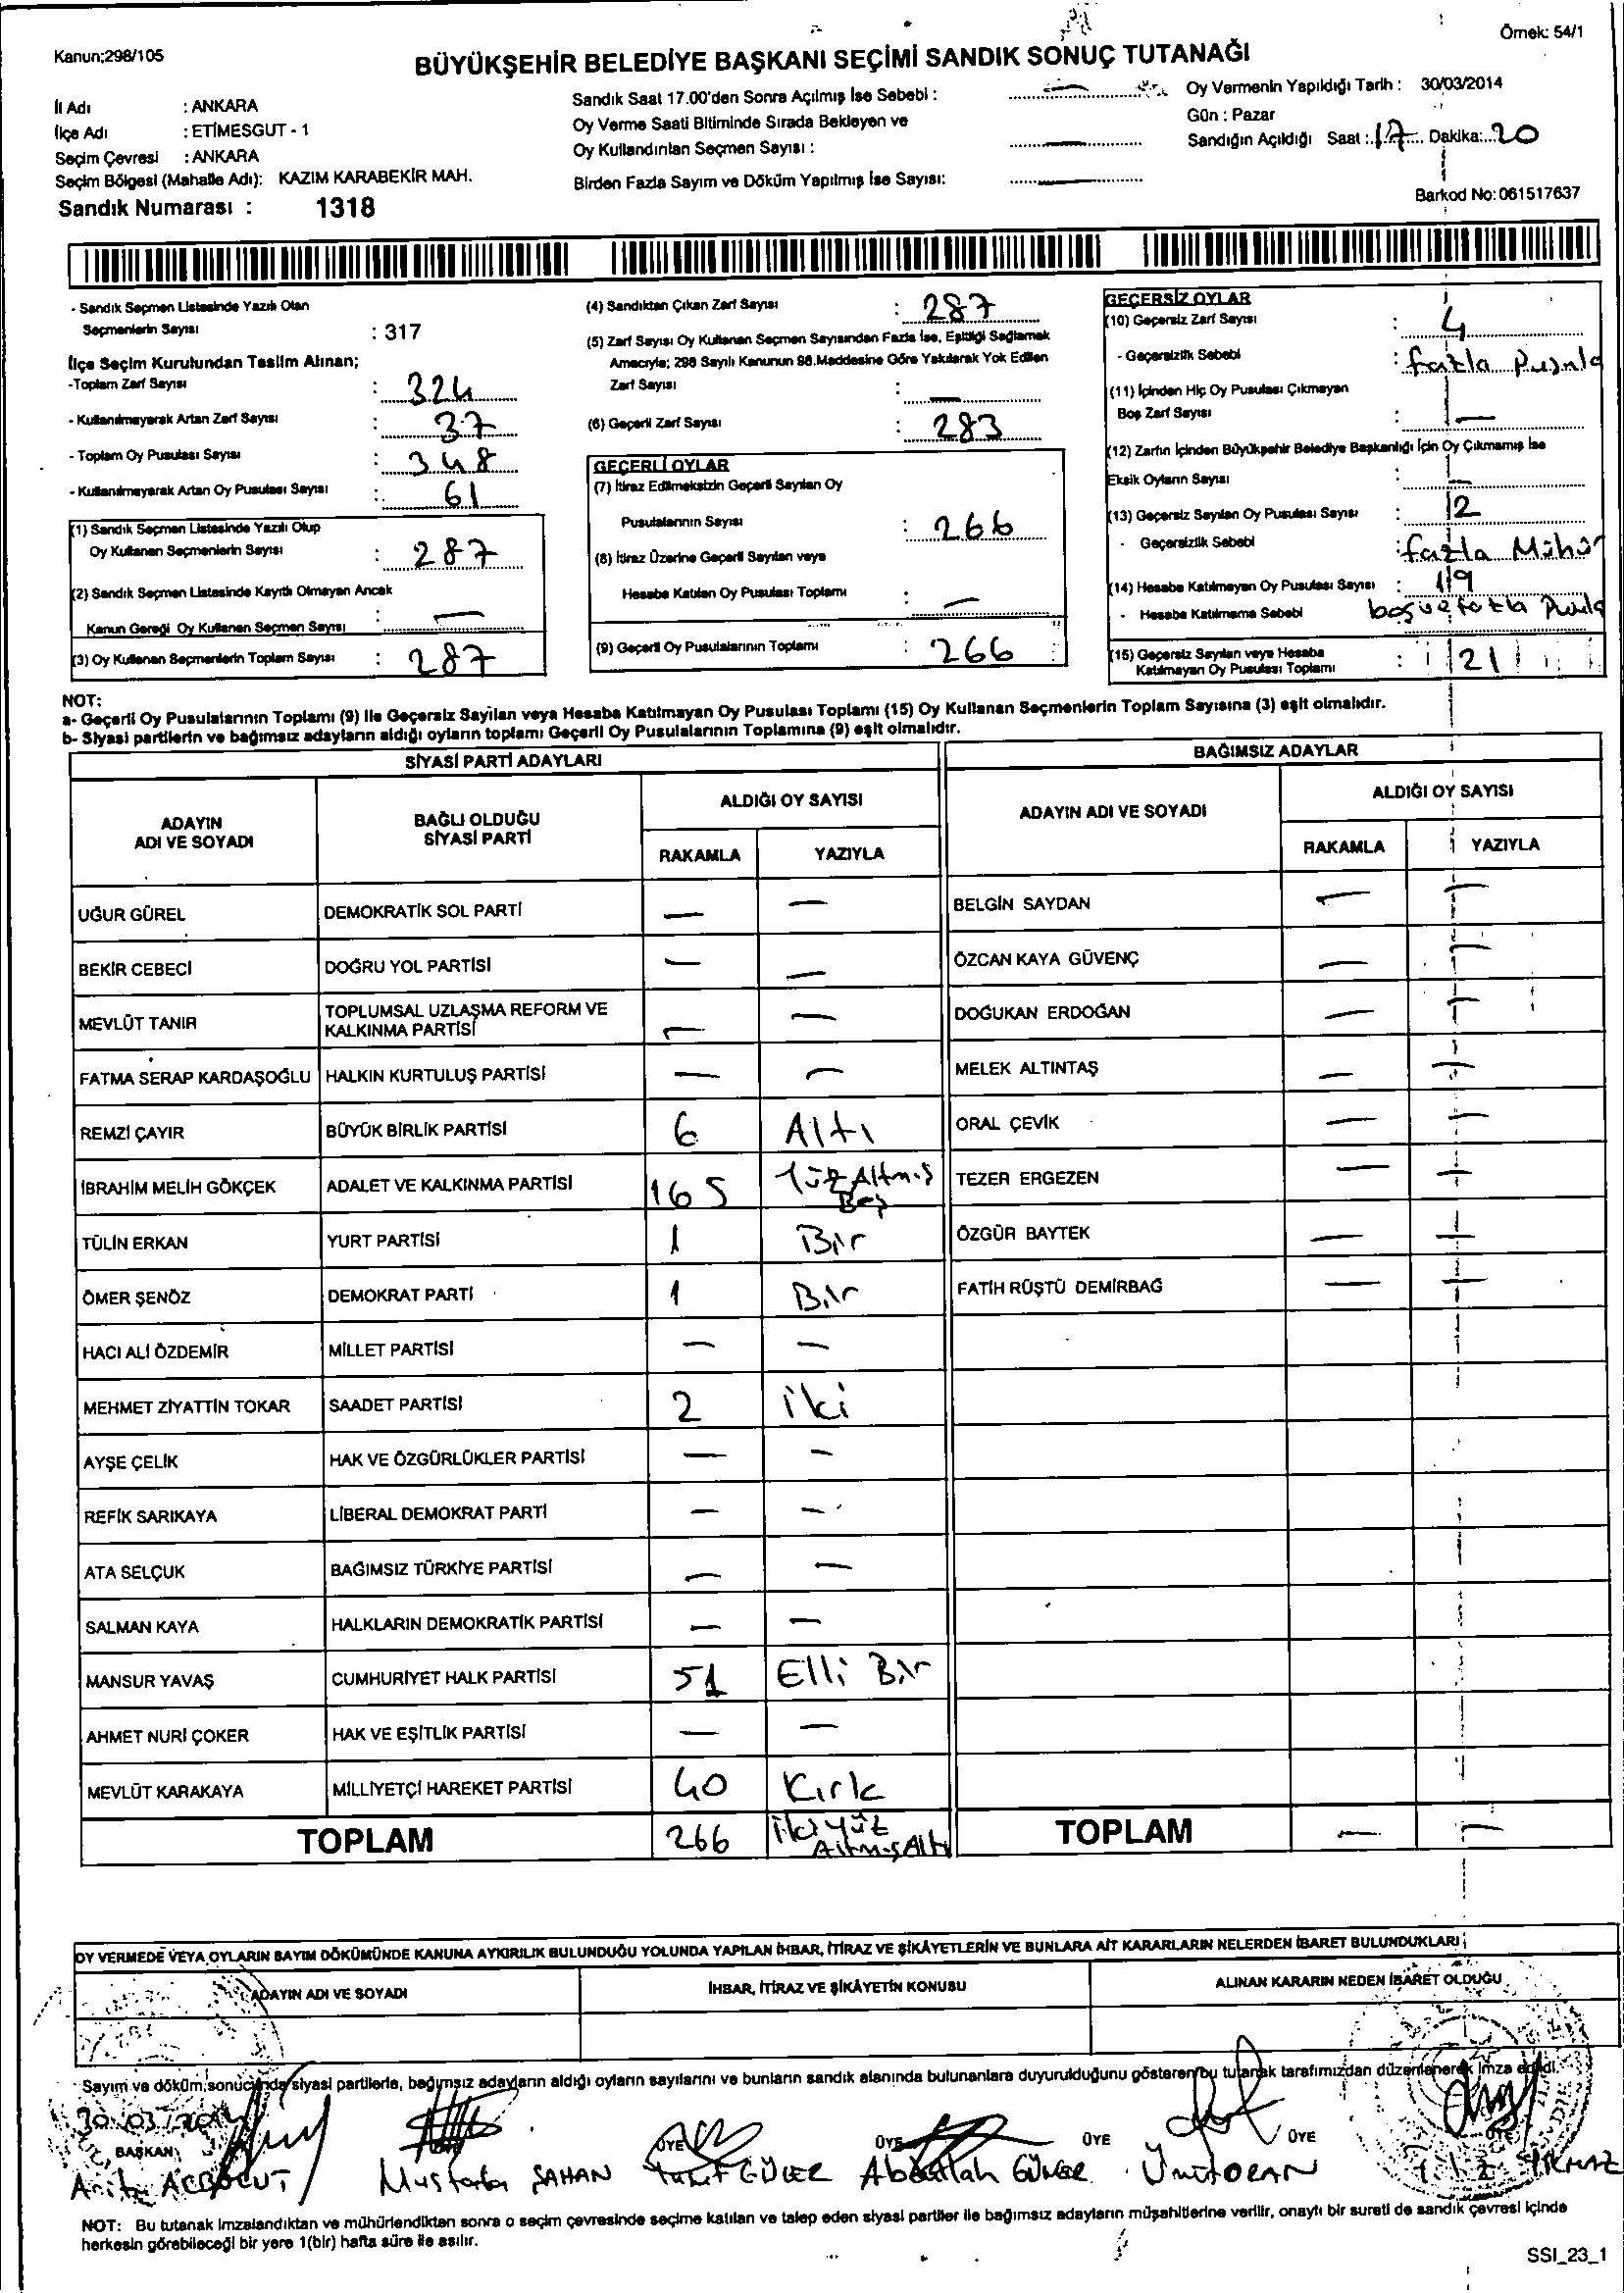 Örnek: 54/1
Kanun;298/105
BÜYÜKŞEHİR BELEDİYE BAŞKANI SEÇİMİ SANDIK SONUÇ TUTANAĞI
İl Adı : ANKARA
İlçe Adı : ETİMESGUT - 1
Seçim Çevresi : ANKARA
Seçim Bölgesi (Mahalle Adı): KAZIM KARABEKİR MAH.
Sandık Numarası : 1318
Sandık Saat 17.00'den Sonra Açılmış İse Sebebi : —
Oy Verme Saati Bitiminde Sırada Bekleyen ve
Oy Kullandırılan Seçmen Sayısı : —
Birden Fazla Sayım ve Döküm Yapılmış İse Sayısı:
Oy Vermenin Yapıldığı Tarih : 30/03/2014
Gün : Pazar
Sandığın Açıldığı Saat : 17 Dakika: 20
Barkod No: 061517637
- Sandık Seçmen Listesinde Yazılı Olan
Seçmenlerin Sayısı : 317
İlçe Seçim Kurulundan Teslim Alınan;
-Toplam Zarf Sayısı : 324
- Kullanılmayarak Artan Zarf Sayısı : 37
- Toplam Oy Pusulası Sayısı : 348
- Kullanılmayarak Artan Oy Pusulası Sayısı : 61
(1) Sandık Seçmen Listesinde Yazılı Olup
Oy Kullanan Seçmenlerin Sayısı : 287
(2) Sandık Seçmen Listesinde Kayıtlı Olmayan Ancak
Kanun Gereği Oy Kullanan Seçmen Sayısı : —
(3) Oy Kullanan Seçmenlerin Toplam Sayısı : 287
(4) Sandıktan Çıkan Zarf Sayısı : 287
(5) Zarf Sayısı Oy Kullanan Seçmen Sayısından Fazla İse, Eşitliği Sağlamak
Amacıyla; 298 Sayılı Kanunun 98.Maddesine Göre Yakılarak Yok Edilen
Zarf Sayısı : —
(6) Geçerli Zarf Sayısı : 283
GEÇERLİ OYLAR
(7) İtiraz Edilmeksizin Geçerli Sayılan Oy
Pusulalarının Sayısı : 266
(8) İtiraz Üzerine Geçerli Sayılan veya
Hesaba Katılan Oy Pusulası Toplamı : —
(9) Geçerli Oy Pusulalarının Toplamı : 266
GEÇERSİZ OYLAR
(10) Geçersiz Zarf Sayısı : 4
- Geçersizlik Sebebi : fazla Pusula
(11) İçinden Hiç Oy Pusulası Çıkmayan
Boş Zarf Sayısı : —
(12) Zarfın İçinden Büyükşehir Belediye Başkanlığı İçin Oy Çıkmamış İse
Eksik Oyların Sayısı : —
(13) Geçersiz Sayılan Oy Pusulası Sayısı : 2
- Geçersizlik Sebebi : fazla Mühür
(14) Hesaba Katılmayan Oy Pusulası Sayısı : 19
- Hesaba Katılmama Sebebi boş ve fazla Pusula
(15) Geçersiz Sayılan veya Hesaba
Katılmayan Oy Pusulası Toplamı : 21
NOT:
a- Geçerli Oy Pusulalarının Toplamı (9) İle Geçersiz Sayılan veya Hesaba Katılmayan Oy Pusulası Toplamı (15) Oy Kullanan Seçmenlerin Toplam Sayısına (3) eşit olmalıdır.
b- Siyasi partilerin ve bağımsız adayların aldığı oyların toplamı Geçerli Oy Pusulalarının Toplamına (9) eşit olmalıdır.
SİYASİ PARTİ ADAYLARI
ADAYIN ADI VE SOYADI BAĞLI OLDUĞU SİYASİ PARTİ ALDIĞI OY SAYISI
RAKAMLA YAZIYLA
UĞUR GÜREL DEMOKRATİK SOL PARTİ — —
BEKİR CEBECİ DOĞRU YOL PARTİSİ — —
MEVLÜT TANIR TOPLUMSAL UZLAŞMA REFORM VE KALKINMA PARTİSİ — —
FATMA SERAP KARDAŞOĞLU HALKIN KURTULUŞ PARTİSİ — —
REMZİ ÇAYIR BÜYÜK BİRLİK PARTİSİ 6 Altı
İBRAHİM MELİH GÖKÇEK ADALET VE KALKINMA PARTİSİ 165 Yüz Altmış Beş
TÜLİN ERKAN YURT PARTİSİ 1 Bir
ÖMER ŞENÖZ DEMOKRAT PARTİ 1 Bir
HACI ALİ ÖZDEMİR MİLLET PARTİSİ — —
MEHMET ZİYATTİN TOKAR SAADET PARTİSİ 2 iki
AYŞE ÇELİK HAK VE ÖZGÜRLÜKLER PARTİSİ — —
REFİK SARIKAYA LİBERAL DEMOKRAT PARTİ — —
ATA SELÇUK BAĞIMSIZ TÜRKİYE PARTİSİ — —
SALMAN KAYA HALKLARIN DEMOKRATİK PARTİSİ — —
MANSUR YAVAŞ CUMHURİYET HALK PARTİSİ 51 Elli Bir
AHMET NURİ ÇOKER HAK VE EŞİTLİK PARTİSİ — —
MEVLÜT KARAKAYA MİLLİYETÇİ HAREKET PARTİSİ 40 Kırk
TOPLAM 266 ikiyüz Altmış Altı
BAĞIMSIZ ADAYLAR
ADAYIN ADI VE SOYADI ALDIĞI OY SAYISI
RAKAMLA YAZIYLA
BELGİN SAYDAN — —
ÖZCAN KAYA GÜVENÇ — —
DOĞUKAN ERDOĞAN — —
MELEK ALTINTAŞ — —
ORAL ÇEVİK — —
TEZER ERGEZEN — —
ÖZGÜR BAYTEK — —
FATİH RÜŞTÜ DEMİRBAĞ — —
TOPLAM — —
OY VERMEDE VEYA OYLARIN SAYIM DÖKÜMÜNDE KANUNA AYKIRILIK BULUNDUĞU YOLUNDA YAPILAN İHBAR, İTİRAZ VE ŞİKÂYETLERİN VE BUNLARA AİT KARARLARIN NELERDEN İBARET BULUNDUKLARI
ADAYIN ADI VE SOYADI İHBAR, İTİRAZ VE ŞİKÂYETİN KONUSU ALINAN KARARIN NEDEN İBARET OLDUĞU
Sayım ve döküm sonucunda siyasi partilerle, bağımsız adayların aldığı oyların sayılarını ve bunların sandık alanında bulunanlara duyurulduğunu gösteren bu tutanak tarafımızdan düzenlenerek imza edildi.
30.03/2014
BAŞKAN ÜYE ÜYE ÜYE ÜYE ÜYE
Mustafa ŞAHAN GÜLER Abdullah GÜNER Ümit ORAN
NOT: Bu tutanak imzalandıktan ve mühürlendikten sonra o seçim çevresinde seçime katılan ve talep eden siyasi partiler ile bağımsız adayların müşahitlerine verilir, onaylı bir sureti de sandık çevresi içinde
herkesin görebileceği bir yere 1(bir) hafta süre ile asılır.
SSI_23_1